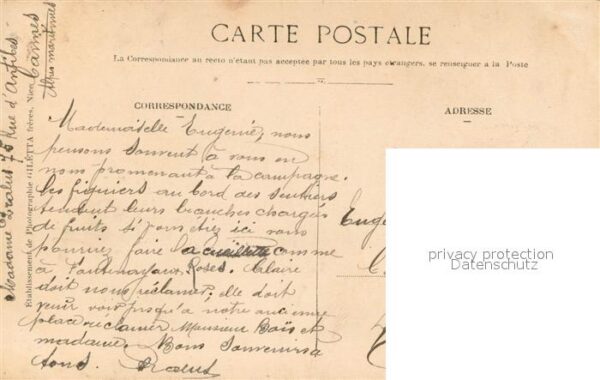 CARTE POSTALE
La Correspondance au recto n'étant pas acceptée par tous les pays étrangers, se renseigner à la Poste
CORRESPONDANCE
ADRESSE
Mademoiselle Eugenie, nous
pensons souvent à vous en
nous promenant à la campagne.
les figuiers au bord des sentiers
tendent leurs branches chargés
de fruits si vous étiez ici vous
pourriez faire la cueillette comme
à Fontenay aux Roses. Claire
doit nous réclamer, elle doit
venir voir jusqu'à notre ancienne
place réclamer Monsieur et
madame. Bons Souvenirs a
tous.
Madame 75 Rue d'Antibes
Cannes
Alpes maritimes
Établissement de Photographie GILETTA frères, Nice
Eug
privacy protection
Datenschutz